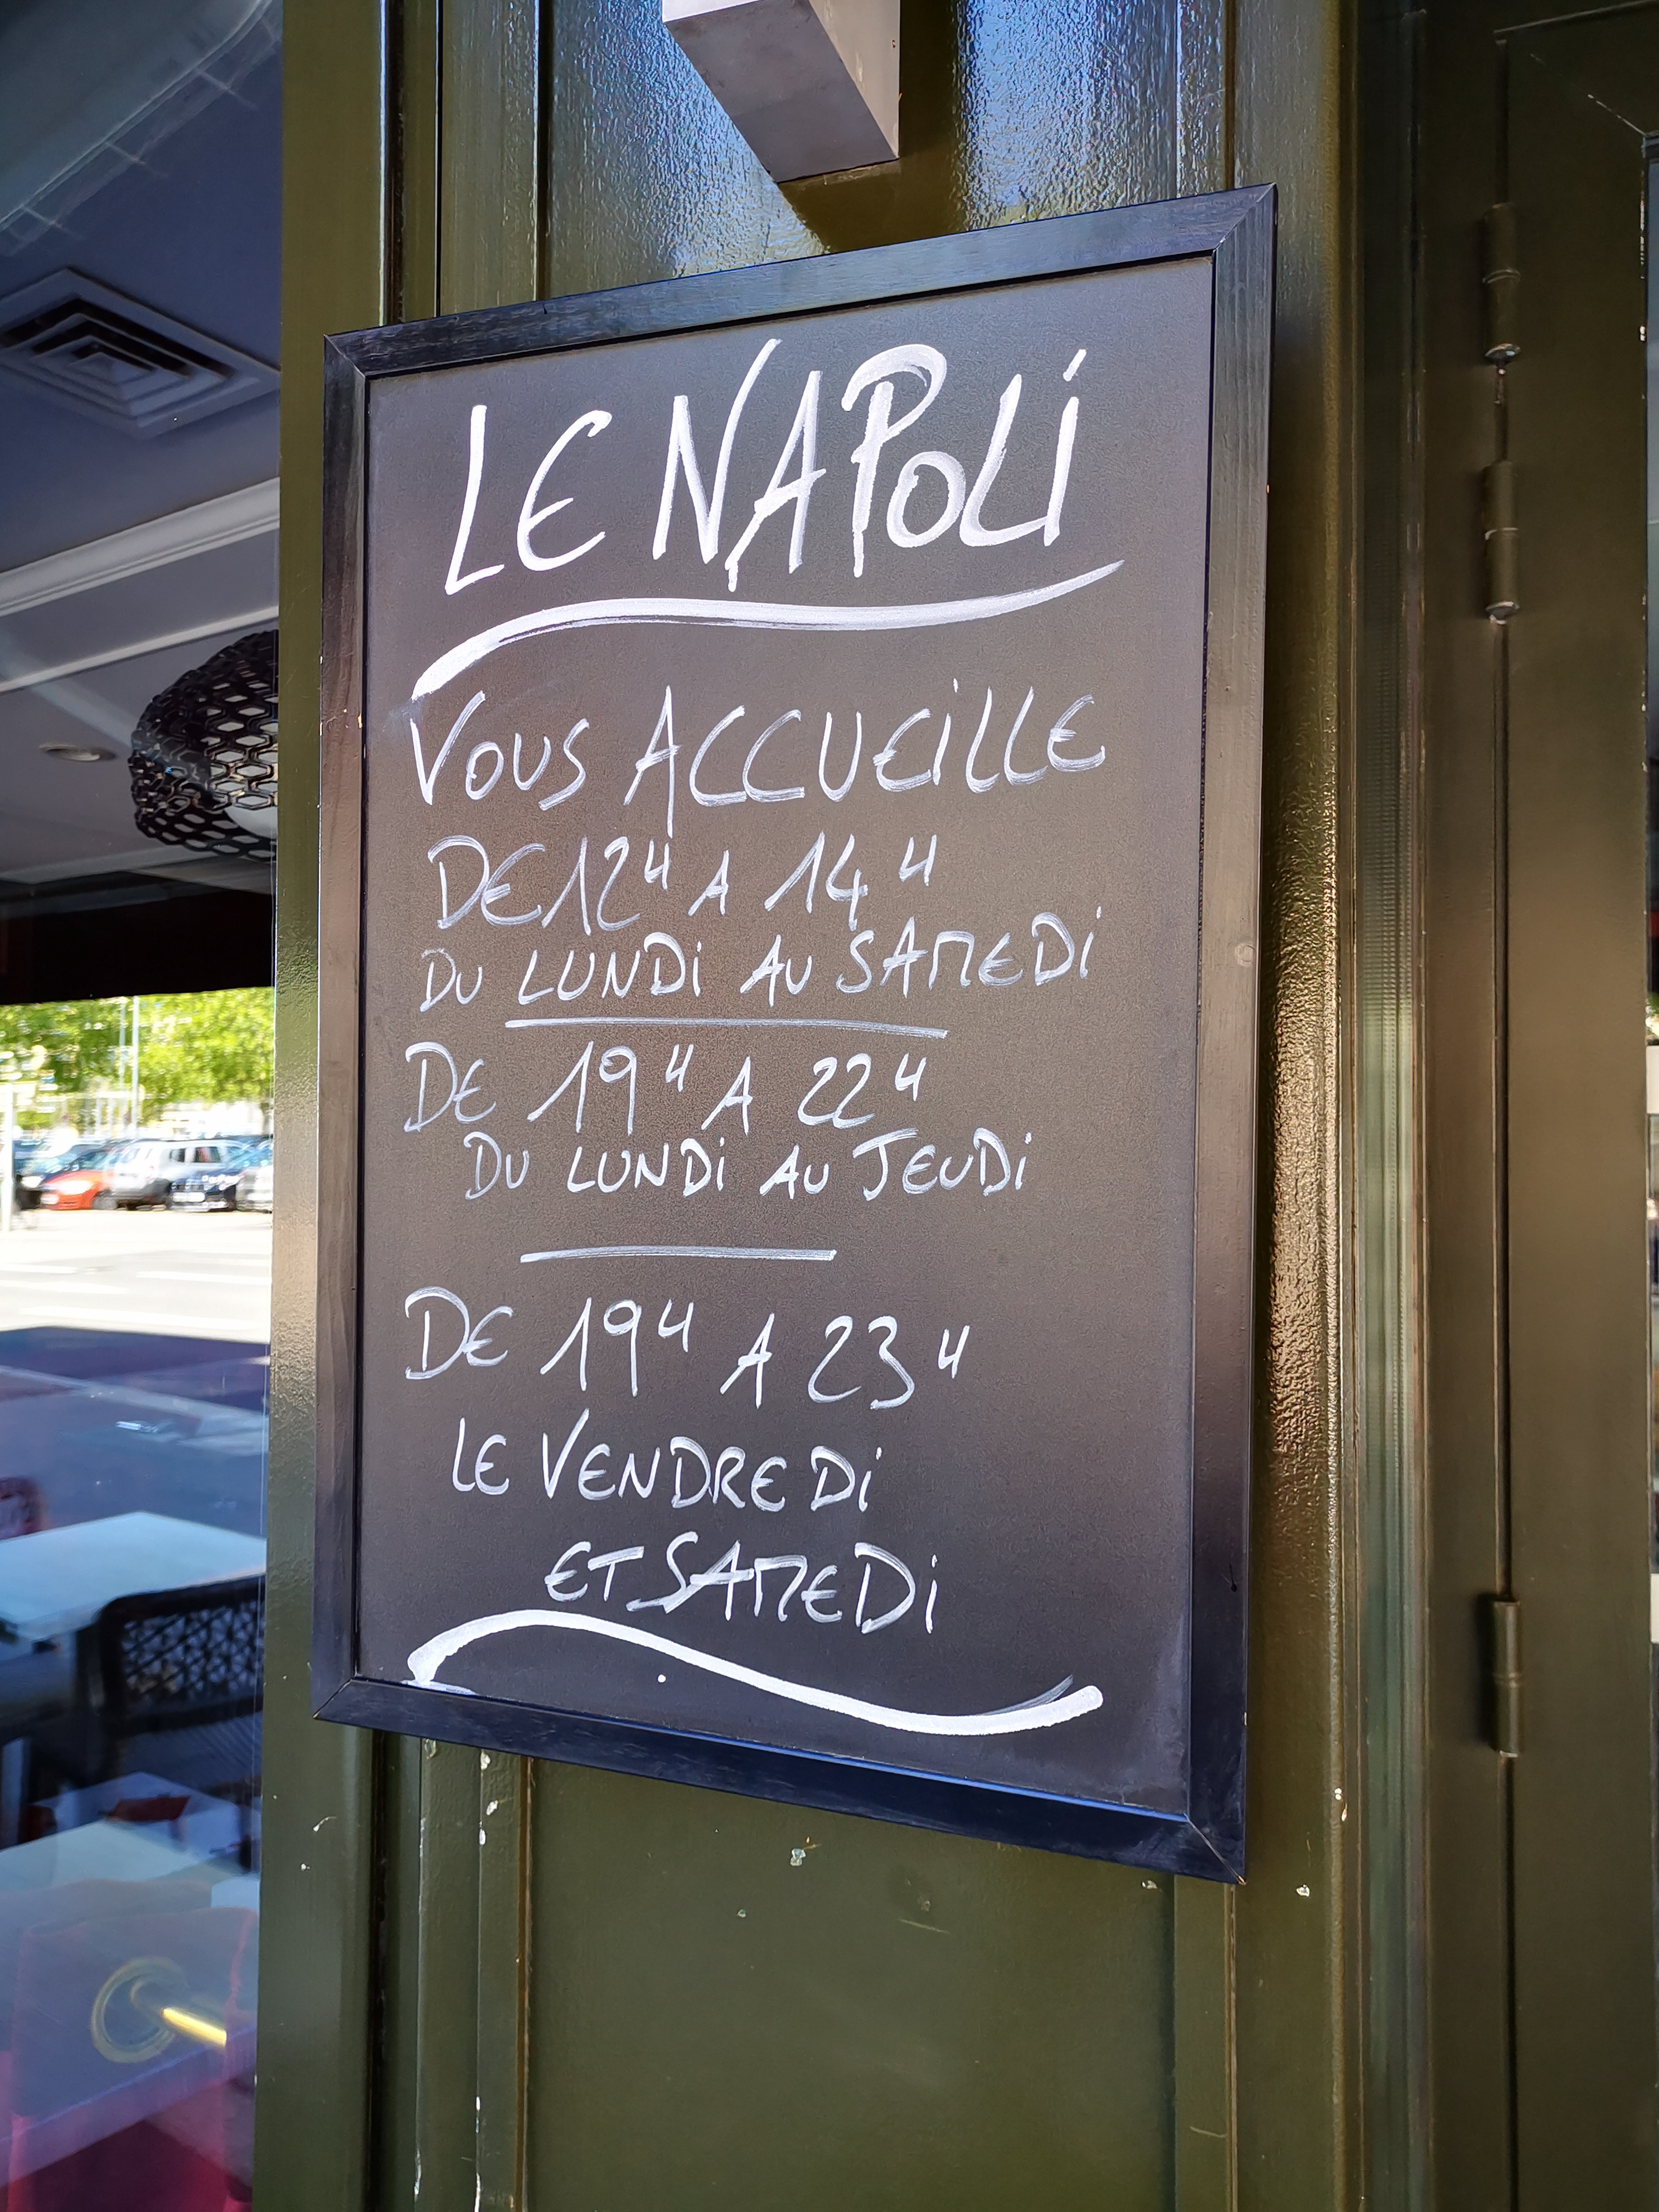 LE NAPOLi
VOUS ACCUEiLLE
DE 12H A 14H
DU LUNDi AU SAMEDi
DE 19H A 22H
DU LUNDi AU JEUDi
DE 19H A 23H
LE VENDREDi
ET SAMEDi